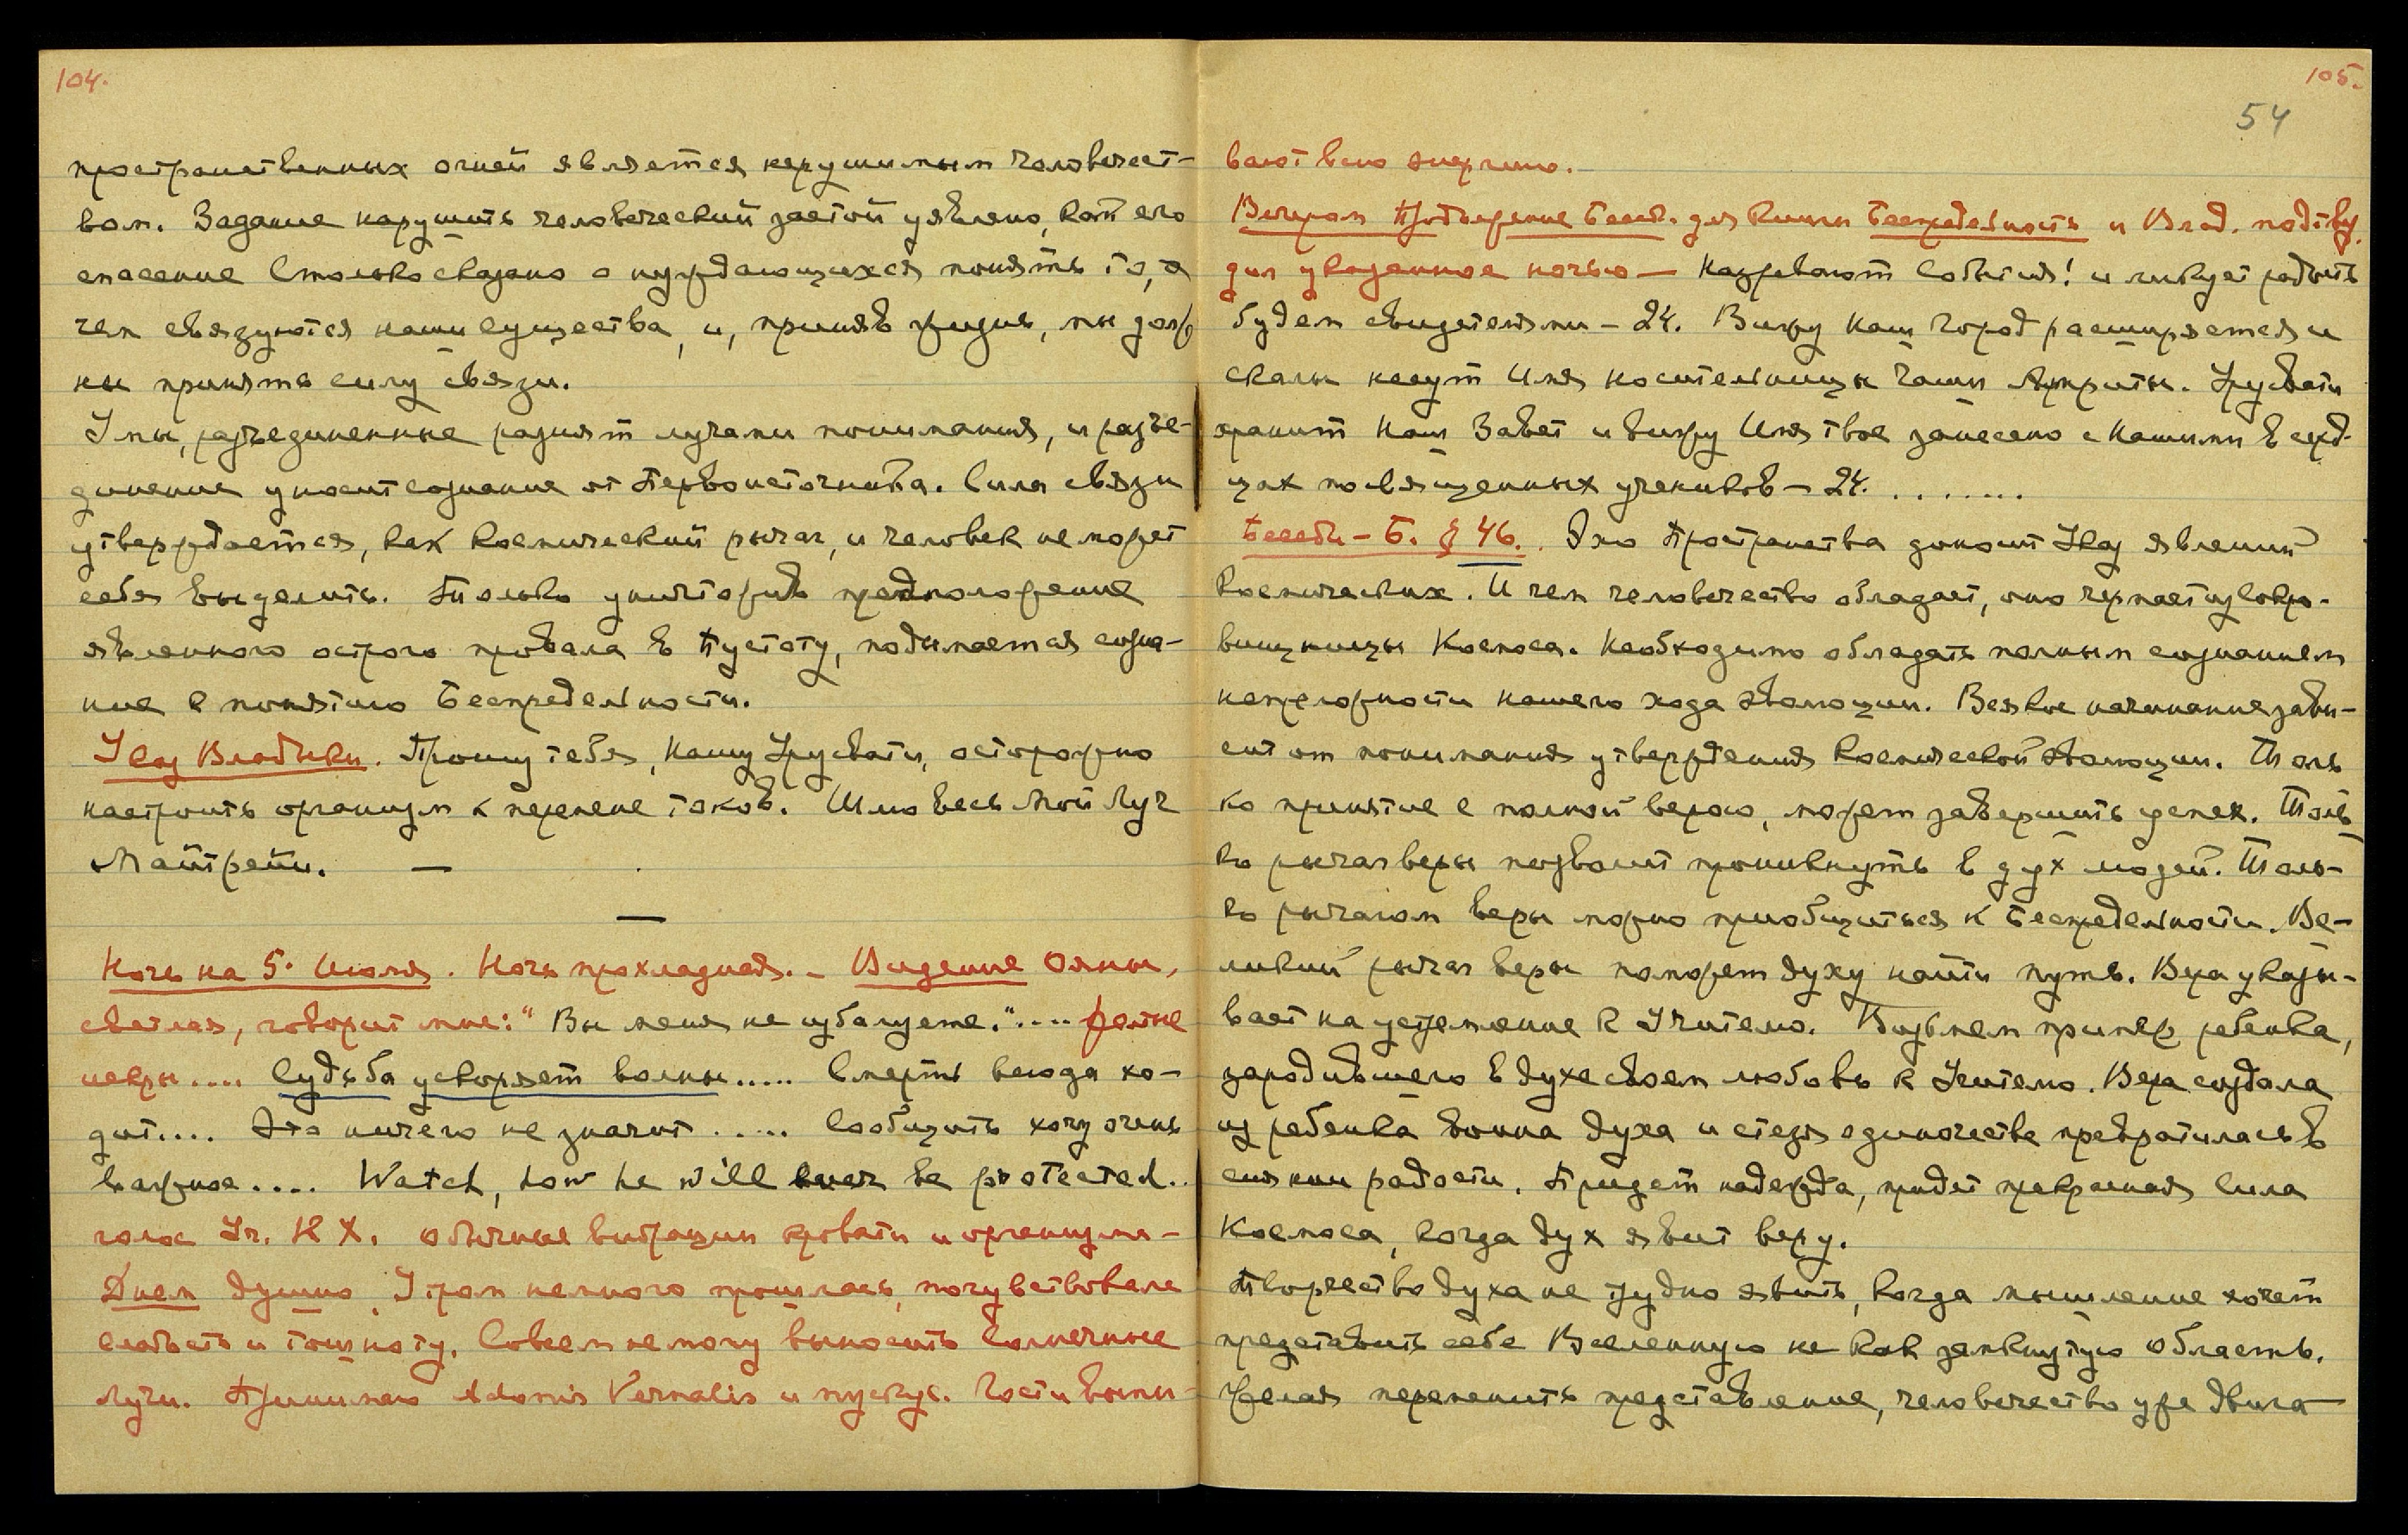 104.
пространственных огней является нерушимым человечест-
вом. Задание нарушить человеческий застой уявлено, как его
спасение Столько сказано о нуждающихся понять то, о
чем связуются наши существа, и, приняв жизнь, мы долж
ны принять силу связи.
Умы, разъединенные разнят лучами понимания, и разъе-
динение уносит сознание от Первоисточника. Сила связи
утверждается, как космический рычаг, и человек не может
себя выделить. Только уничтожив предположение
явленного острого провала в Пустоту, подымается созна-
ние к понятию Беспредельности.
Указ Владыки. Прошу тебя, Нашу Урусвати, осторожно
настроить организм к перемене токов. Шлю весь Мой Луч
Майтрейи. —
—
Ночь на 5. Июля. Ночь прохладная. – Видение Ояны,
светлая, говорит мне: "Вы меня не избалуете."....
искры.... Судьба ускоряет волны..... Смерть всюда хо-
дит.... Это ничего не значит ..... Сообщить хочу очень
важное.... Watch, how he will be protected..
голос Уч. К Х. обычные вибрации кровати и организма –
Днем душно. Утром немного прошлась, почувствовала
слабость и тошноту. Совсем не могу выносить Солнечные
лучи. Принимаю Adonis Vernalis и мускус. Гости выпи-
105.
54
вают всю энергию.
Вечером Продиктование Бесед. для Книги Беспредельность и Влад. подтвер.
дил указанное ночью — Назревают События! и ликует радость
будем свидетелями – 24. Вижу Наш Город расширяется и
скалы несут Имя носительницы Чаши Амриты. Урусвати
хранит Наш Завет и вижу Имя твое занесено с Нашими в серд-
цах посвященных учеников – 24. . . . . . . .
Беседы – Б. § 46. Эхо Пространства доносит Указ явлений
Космических. И чем человечество обладает, оно черпает из Сокро-
вищницы Космоса. Необходимо обладать полным сознанием
непреложности нашего хода эволюции. Всякое начинание зави-
сит от понимания утверждения Космической Эволюции. Толь
ко принятие с полной верою, может завершить успех. Толь
ко рычаг веры позволит проникнуть в дух людей. Толь-
ко рычагом веры можно приобщиться к Беспредельности. Ве-
ликий рычаг веры поможет духу найти путь. Вера указы-
вает на устремление к Учителю. Возьмем пример ребенка,
зародившего в духе своем любовь к Учителю. Вера создала
из ребенка воина духа и стезя одиночества превратилась в
сияние радости. Придет надежда, придет прекрасная Сила
Космоса, когда дух явит веру.
Творчество духа не трудно явить, когда мышление хочет
представить себе Вселенную не как замкнутую область.
Желая переменить представление, человечество уже двига